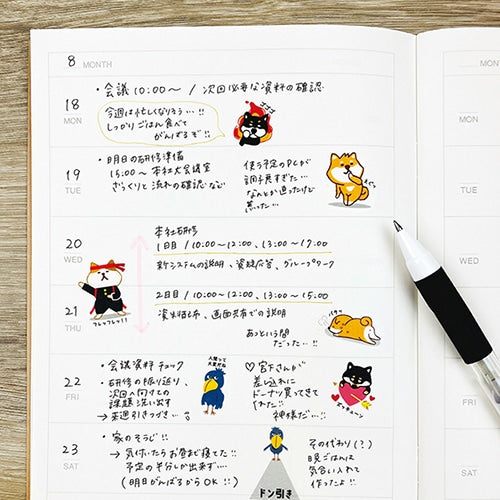 8 MONTH
18 MON
・会議 10:00～ / 次回必要な資料の確認
今週は忙しくなりそう…!!
しっかりごはん食べて
がんばるぞ!!
19 TUE
・明日の研修準備
15:00～ 本社大会議室
ざっくりと流れの確認など
使う予定のPCが
調子悪すぎた…
なんとか直ったけど
焦った…
20 WED
本社研修
1日目 / 10:00～12:00、13:00～17:00
新システムの説明、質疑応答、グループワーク
フレッフレッ!!
21 THU
2日目 / 10:00～12:00、13:00～15:00
資料配布、画面共有での説明
あっという間
だった…!!
22 FRI
・会議資料チェック
・研修の振り返り、
次回へ向けての
課題洗い出す
→来週引きつづき…
人間って
大変だね
♡宮下さんが
差し入れに
ドーナツ買ってきて
くれた!!
神様だ…!!
23 SAT
・家のそうじ!!
→気付いたらお昼まで寝てた!!
予定の半分しか出来ず…
(明日がんばるからOK!!)
ドン引き
その代わり(?)
晩ごはんは
気合い入れて
作ったよ!!
MON
TUE
WED
THU
FRI
SAT